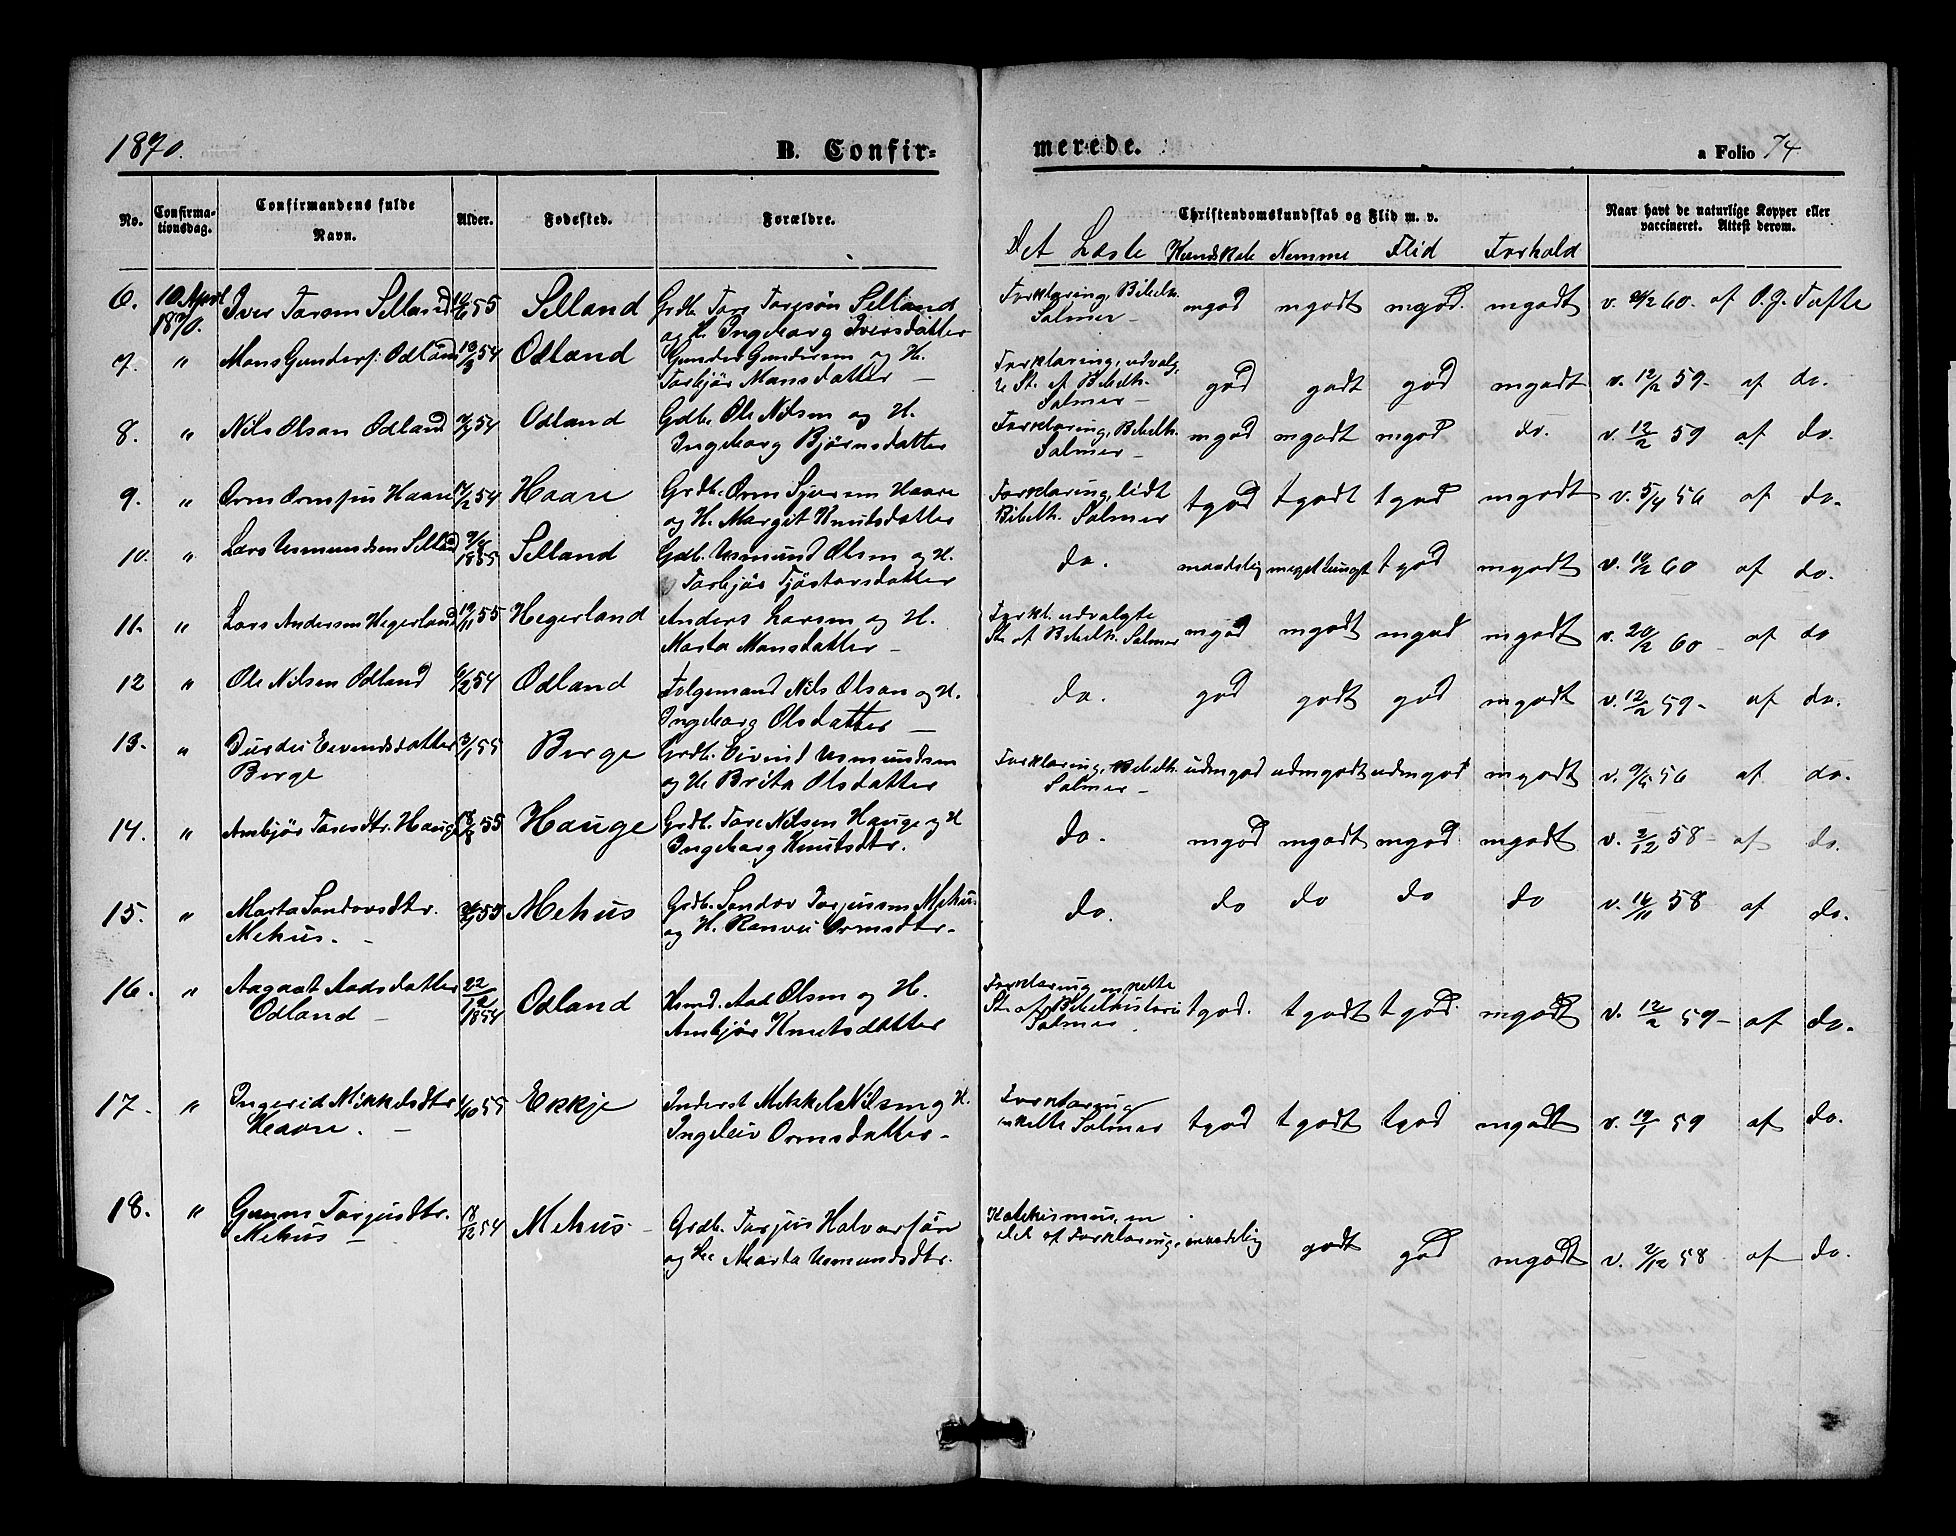 1870.
B. Confirmerede.
a Folio 74
No. Confirmationsdag. Confirmandens fulde Navn. Alder. Fødested. Forældre. Christendomskundskab og Flid m. v. Naar havt de naturlige Kopper eller vaccineret. Attest derom.
Det Læste Kundskab Nemme Flid Forhold
6. 10 April 1870. Iver Torsen Selland 55 Selland Grdb. Tore Toresøn Selland
og H. Ingeborg Iversdatter
Forklaring, Bibelh. Salmer – mgod mgodt mgod. mgodt v. 60. af O. J. Tofte
7. " Mons Gunders. Odland 54 Odland Gunder Gundersen og H.
Torbjør Monsdatter –
Forklaring, udvalg, te St. af Bibelh. Salmer – god godt god mgodt v. 12/2 59 – af do.
8. " Nils Olsen Odland 54 Odland Gdb. Ole Nilsen og H.
Ingeborg Bjørnsdatter
Forklaring, Bibelh. Salmer – mgod mgodt mgod do. v. 12/2 59 af do.
9. " Orm Ormsen Haare 54 Haare Grdb. Orm Sjursen Haare
og H. Margit Knutsdatter
Forklaring, lidt Bibelh. Salmer tgod tgodt tgod mgodt v. 5/4 56 af do.
10. " Lars Usmundsen Selland 1855 Selland Gdb. Usmund Olsen og H.
Torbjør Tjøstorsdatter
do. maadelig meget tungt tgod mgodt v. 60 af do.
11. " Lars Andersen Hegerland 19/11 55 Hegerland Anders Larsen og H.
Marta Monsdatter –
Forkl. udvalgte St. af Bibelh. Salmer mgod mgodt mgod mgodt v. 20/2 60 – af do
12 " Ole Nilsen Odland 6/2 54 Odland Folgemand Nils Olsen og H.
Ingeborg Olsdatter –
do. god godt god mgodt v. 12/2 59 – af do.
13. " Eivendsdatter 55 Berge Grdb. Eivind Usmundsen
Berge og H. Brita Olsdatter
Forklaring, Bibelh. Salmer – udmgod udmgodt udmgod mgodt v. 56 af do.
14. " Ambjør Toresdtr. Hauge 55 Hauge Grdb. Tore Nilsen Hauge og H
Ingeborg Knutsdtr.
do. mgod mgodt mgod mgodt v. 2/12 58 – af do.
15. " Marta Sondovsdtr. 55 Mehus Grdb. Sondov Torjussen Mehus
Mehus. – og H. Ranvei Ormsdtr. –
do. do do do do v. 16/11 58 af do.
16. " Aagaat Aadsdatter 22/12 1854 Odland Husmd. Aad Olsen og H.
Odland – Ambjør Knutsdatter
Forklaring enkelte St. af Bibelhistorie Salmer tgod. tgodt tgod. mgodt v. 12/2 59 – af do.
17. " Ingerid Mikkelsdtr 55 Ekkje Inderst Mikkel Nilsen og H.
Haare. – Ingeleiv Ormsdatter –
Forklaring enkelte Salmer tgod tgodt tgod mgodt v. 59 af do.
18. " Gunn Torjusdtr. 18/12 54 Mehus – Grdb. Torjus Halvorsøn
Mehus – og H. Marta Usmundsdtr.
Katekismus, en del af Forklaring, maadelig godt god mgodt v. 2/12 58 af do.